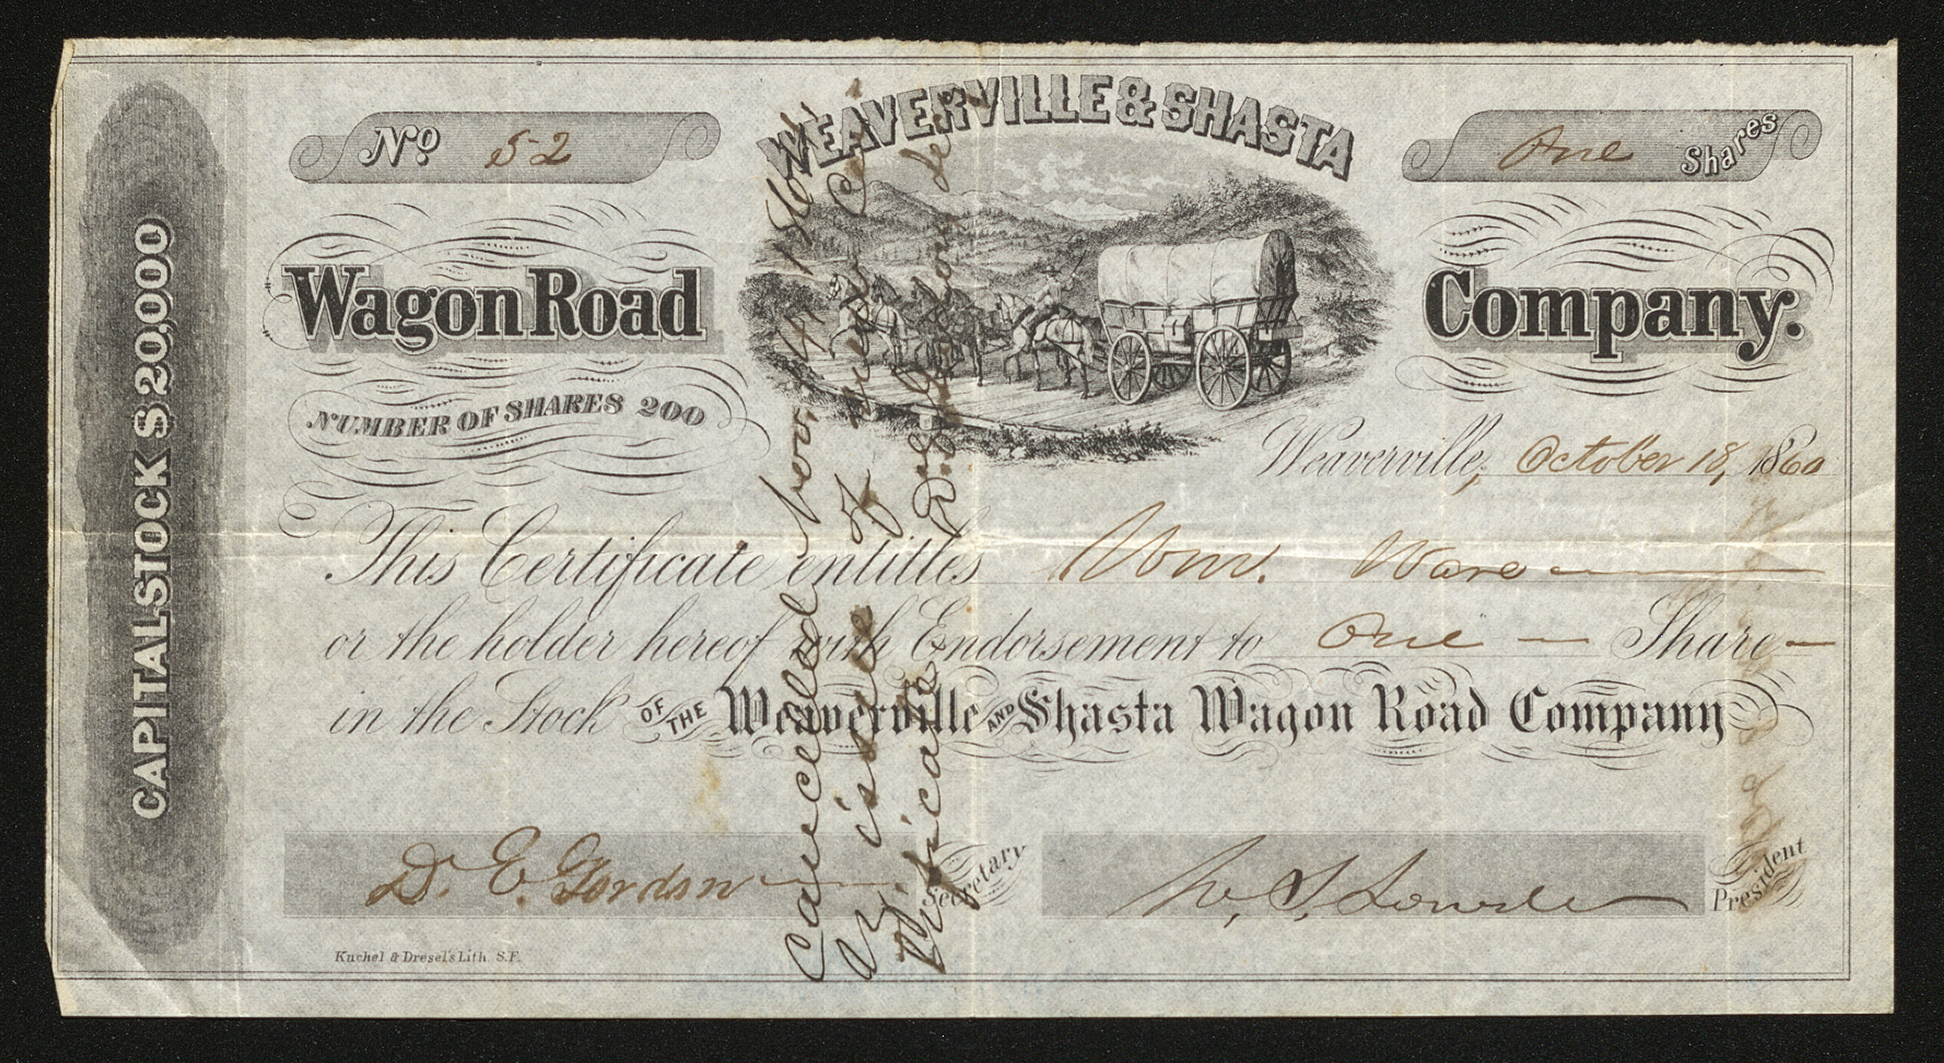 CAPITAL STOCK $20,000
No 52
WEAVERVILLE & SHASTA
One Shares
Wagon Road
Company.
NUMBER OF SHARES 200
Weaverville, October 18, 1860
This Certificate entitles Wm. Ware
or the holder hereof with Endorsement to One Share
in the Stock OF THE Weaverville AND Shasta Wagon Road Company
D. E. Gordon Secretary
W. S. Lowden President
Kuchel & Dresel's Lith. S.F.
Cancelled Nov
issue of